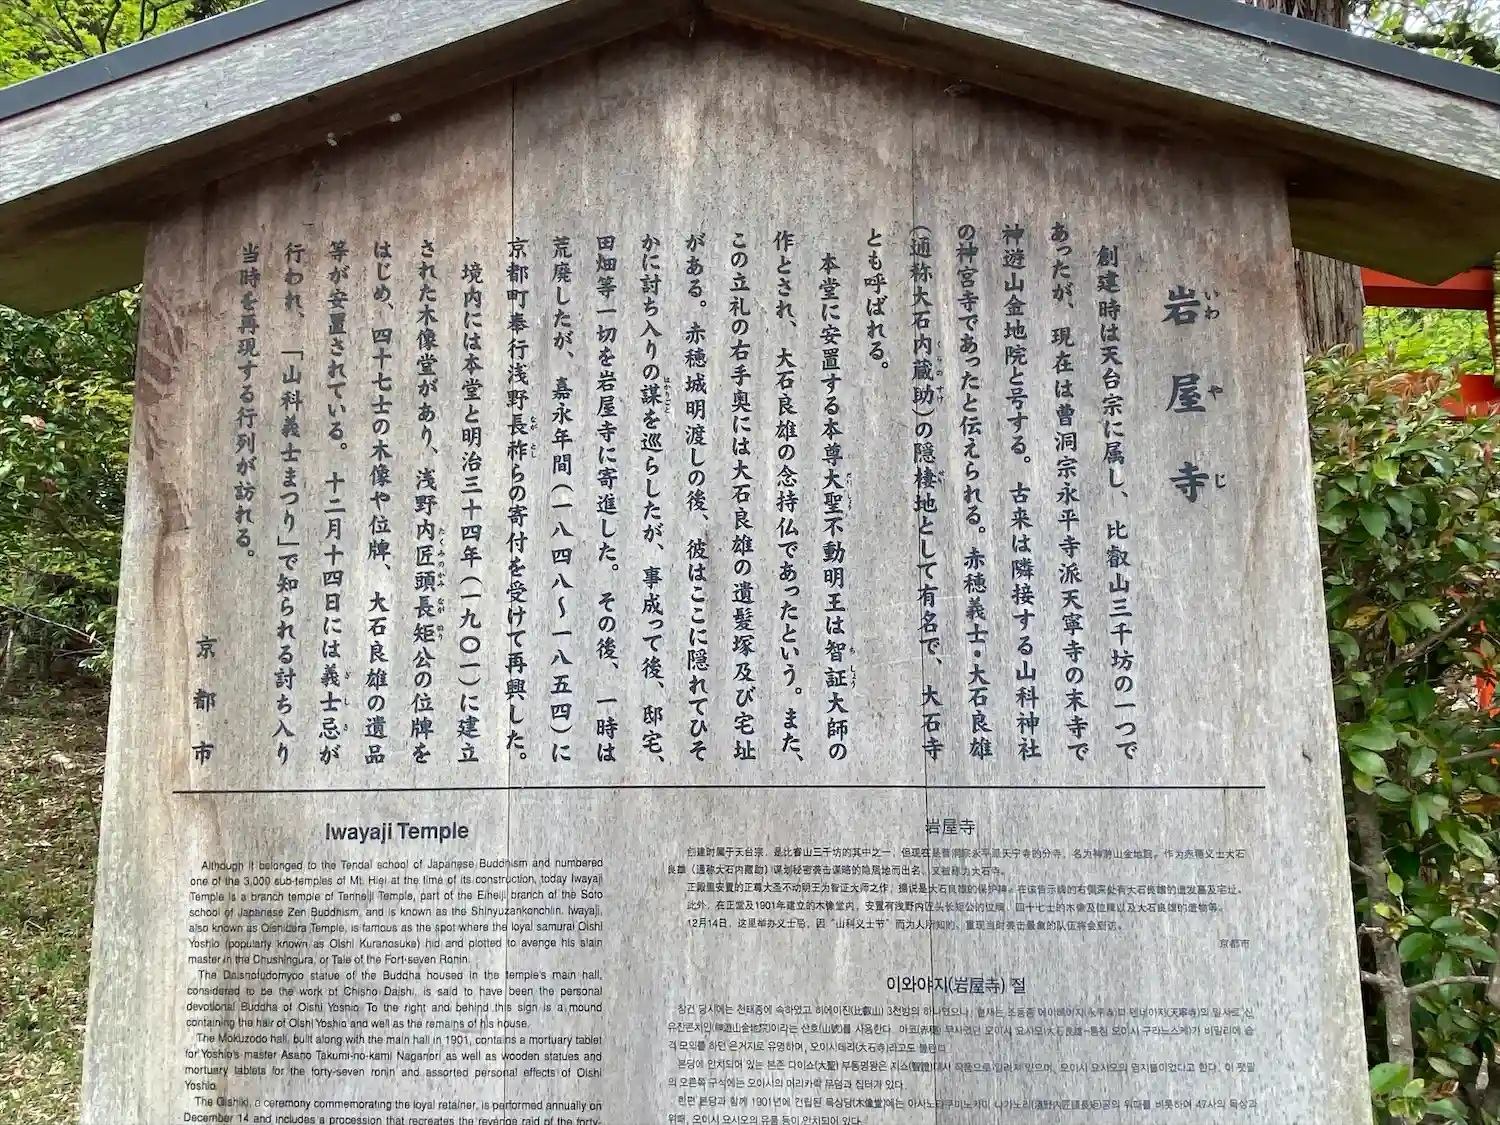 岩屋寺
いわ や じ
創建時は天台宗に属し、比叡山三千坊の一つで
あったが、現在は曹洞宗永平寺派天寧寺の末寺で
神遊山金地院と号する。古来は隣接する山科神社
の神宮寺であったと伝えられる。赤穂義士・大石良雄
（通称大石内蔵助）の隠棲地として有名で、大石寺
とも呼ばれる。
本堂に安置する本尊大聖不動明王は智証大師の
作とされ、大石良雄の念持仏であったという。また、
この立札の右手奥には大石良雄の遺髪塚及び宅址
がある。赤穂城明渡しの後、彼はここに隠れてひそ
かに討ち入りの謀を巡らしたが、事成って後、邸宅、
田畑等一切を岩屋寺に寄進した。その後、一時は
荒廃したが、嘉永年間（一八四八〜一八五四）に
京都町奉行浅野長祚らの寄付を受けて再興した。
境内には本堂と明治三十四年（一九〇一）に建立
された木像堂があり、浅野内匠頭長矩公の位牌を
はじめ、四十七士の木像や位牌、大石良雄の遺品
等が安置されている。十二月十四日には義士忌が
行われ、「山科義士まつり」で知られる討ち入り
当時を再現する行列が訪れる。
京都市
Iwayaji Temple
Although it belonged to the Tendai school of Japanese Buddhism and numbered
one of the 3,000 sub-temples of Mt. Hiei at the time of its construction, today Iwayaji
Temple is a branch temple of Tenneiji Temple, part of the Eiheiji branch of the Soto
school of Japanese Zen Buddhism, and is known as the Shinyuzankonchiin. Iwayaji,
also known as Oishidera Temple, is famous as the spot where the loyal samurai Oishi
Yoshio (popularly known as Oishi Kuranosuke) hid and plotted to avenge his slain
master in the Chushingura, or Tale of the Fort-seven Ronin.
The Daishofudomyoo statue of the Buddha housed in the temple's main hall,
considered to be the work of Chisho Daishi, is said to have been the personal
devotional Buddha of Oishi Yoshio. To the right and behind this sign is a mound
containing the hair of Oishi Yoshio and well as the remains of his house.
The Mokuzodo hall, built along with the main hall in 1901, contains a mortuary tablet
for Yoshio's master Asano Takumi-no-kami Naganori as well as wooden statues and
mortuary tablets for the forty-seven ronin and assorted personal effects of Oishi
Yoshio.
The Gishiki, a ceremony commemorating the loyal retainer, is performed annually on
December 14 and includes a procession that recreates the revenge raid of the forty-
岩屋寺
创建时属于天台宗，是比睿山三千坊的其中之一，但现在是曹洞宗永平派天宁寺的分寺，名为神游山金地院。作为赤穗义士大石
良雄（通称大石内藏助）谋划秘密袭击谋略的隐居地而出名，又被称为大石寺。
正殿里安置的正尊大圣不动明王为智证大师之作，据说是大石良雄的保护神。在该告示牌的右侧深处有大石良雄的遗发墓及宅址。
此外，在正堂及1901年建立的木像堂内，安置有浅野内匠头长矩公的位牌、四十七士的木像及位牌以及大石良雄的遗物等。
12月14日，这里举办义士忌，因“山科义士节”而为人所知的、重现当时袭击景象的队伍将会到访。
京都市
이와야지(岩屋寺) 절